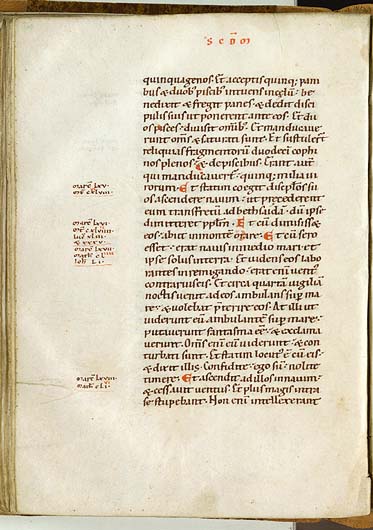 SCDM
quinquagenos. Et acceptis quinq; pani
bus & duob; piscib; intuens in cęlũ. be
nedixit & fregit panes & dedit disci
pulis suis ut ponerent ante eos. Et du
os pisces divisit omĩb; Et manducave
runt om̃s & saturati sunt. Et sustuler̃t
reliquas fragmentorũ duodeci cophi
nos plenos & de piscibus. Erant aut̃
qui manducaver̃t quinq; milia vi
rorum. Et statim coegit discipłos su
os ascendere navem. ut precederent
eum trans fretũ ad bethsaida. dũ ipse
dimitteret pp̃lm. Et cũ dimisiss&
eos abiit in monte orare. Et cũ sero
esset. erat navis in medio mari et
ipse solus in terra. Et videns eos labo
rantes in remigando. erat eni ventꝰ
contrarius eis. Et circa quartã vigiliã
noctis venit ad eos ambulans sup mare
& volebat preterire eos. At illi ut
viderunt eũ ambulantẽ sup mare.
putaverunt fantasma eẽ. & exclama
verunt. Om̃s eni eũ viderunt. & con
turbati sunt. Et statim locutꝰ ẽ cũ eis.
& dixit illis. Confidite. ego sũ. nolite
timere. Et ascendit ad illos in navim
& cessavit ventus. Et plus magis intra
se stupebant. Non eni intellexerant